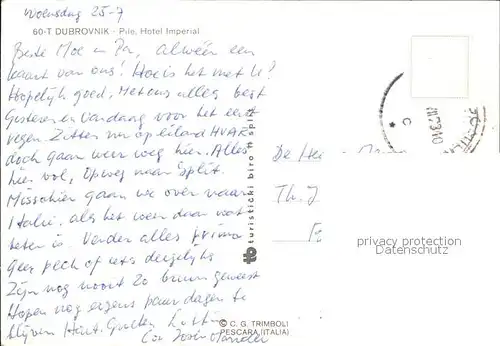 Woensdag 25-7
60-T DUBROVNIK - Pile, Hotel Imperial
Beste Moe en Pa, alweer een
kaart van ons! Hoe is het met U?
Hopelijk goed, Met ons alles best
Gisteren en Vandaag voor het eerst
regen. Zitten nu op eiland HVAR
doch gaan weer weg hier. Alles
hier vol, Op weg naar Split.
Misschien gaan we over naar
Italië. als het weer daar wat
beter is. Verder alles prima
Geen pech of iets dergelijks
Zijn nog nooit zo bruin geweest
Hopen nog ergens paar dagen te
blijven Hart. Groeten
Cor
turistički biro split
tb
De
Th. J
privacy protection
Datenschutz
© C. G. TRIMBOLI
PESCARA (ITALIA)